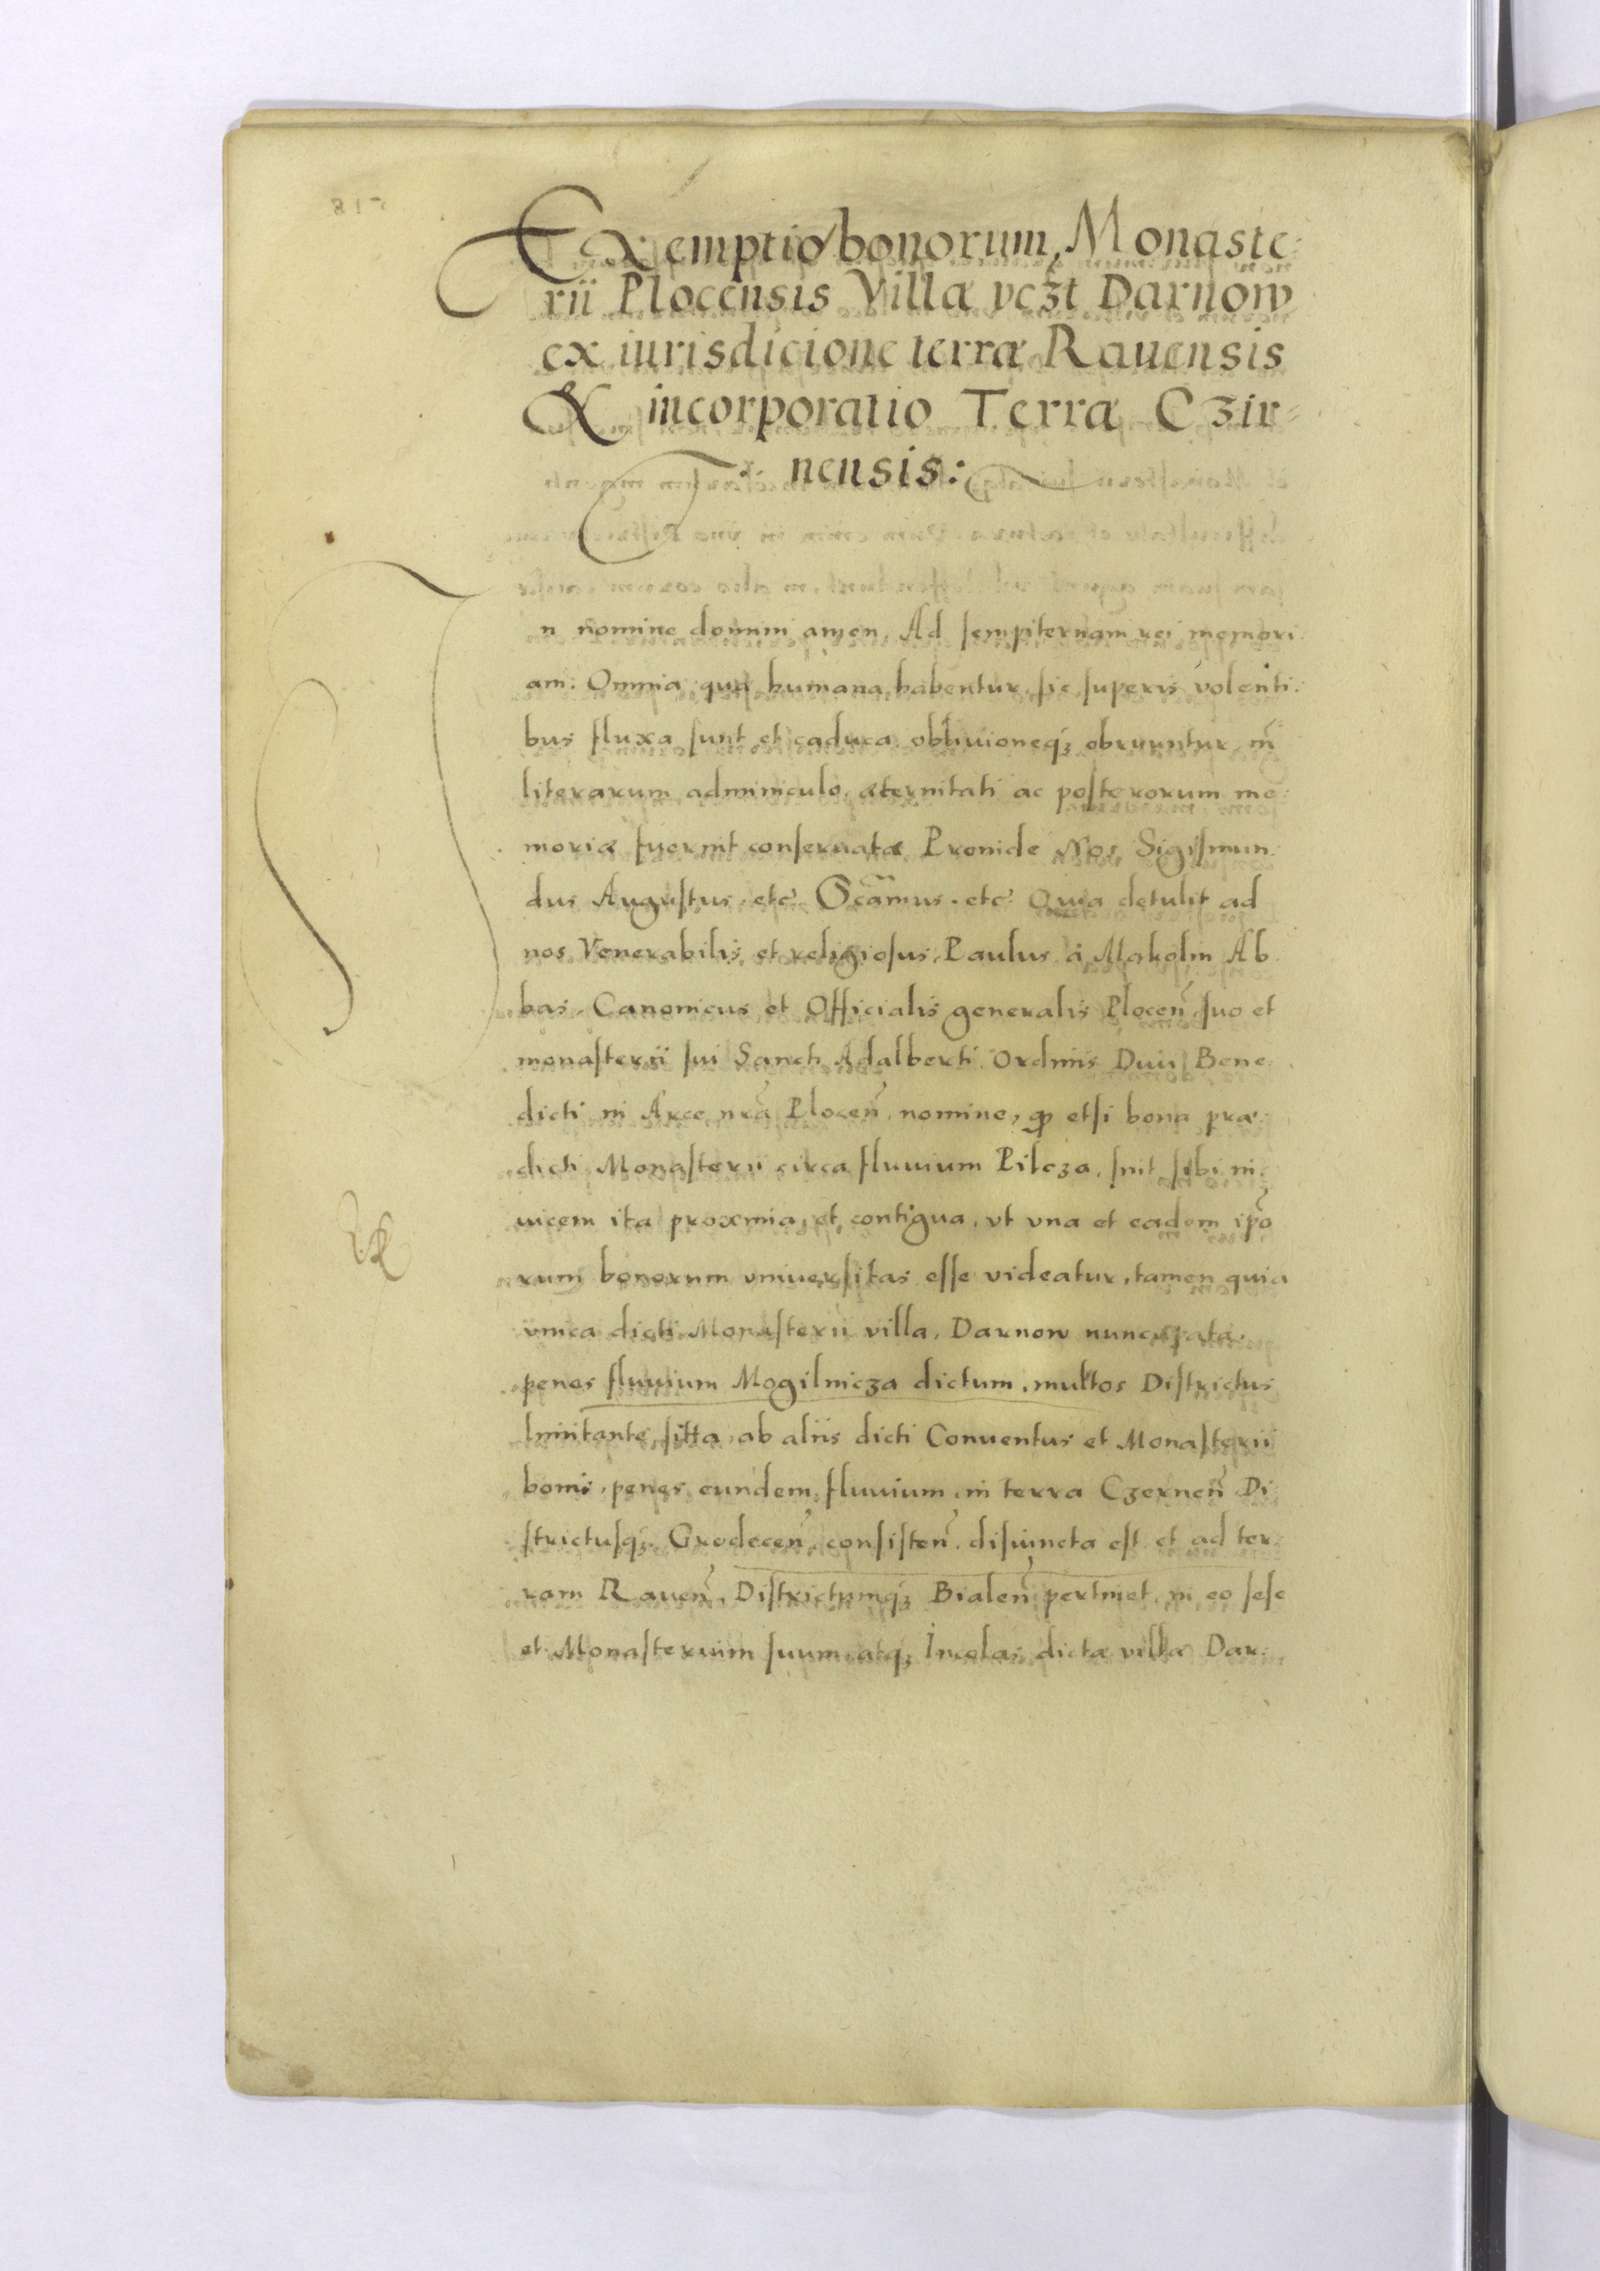 Exemptio bonorum Monaste-
rii Plocensis Villæ vcʒt Darnow
ex iurisdicione terræ Rauensis
& incorporatio Terræ Cʒir-
nensis:
In nomine domini amen, Ad sempiternam rei memori
am. Omnia quæ humana habentur, sic superis volenti
bus fluxa sunt et caduca obliuioneqʒ obruuntur, ni
literarum adminiculo, æternitati ac posterorum me
moriæ fuerint conseruatæ Proinde Nos Sigismun
dus Augustus, etc̃ . etc̃ Quia detulit ad
nos Venerabilis et religiosus, Paulus à Makolin Ab
bas, Canonicus et Officialis generalis Plocen̄ suo et
monasterii sui Sancti Adalberti Ordinis Diui Bene
dicti in Arce nr̃a Plocen̄ nomine, ꝙ etsi bona præ
dicti Monasterii circa fluuium Pilcʒa, sint sibi in
uicem ita proxima, et contigua, vt vna et eadem ip̃o
rum bonorum vniuersitas esse videatur, tamen quia
vnica dicti Monasterii villa, Darnow nuncupata,
penes fluuium Mogilnicʒa dictum, multos Districtus
limitante, sitta, ab aliis dicti Conuentus et Monasterii
bonis, penes eundem fluuium, in terra Cʒernen̄ Di
strictusqʒ Grodecen̄ consisten̄ disiuncta est et ad ter
ram Rauen̄, Districtumqʒ Bialen̄ pertinet, in eo sese
et Monasterium suum, atqʒ Incolas dictæ villæ Dar